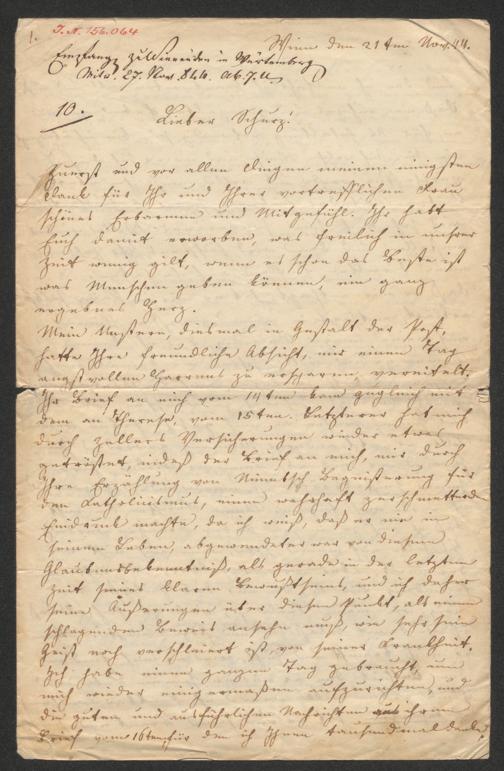 1. I.N. 156.064
Wien den 21ten Nov. 44.
Empfang zu Winnenden in Würtemberg
Mitw. 27. Nov. 844.
10.
Lieber Schurz!
Zuerst und vor allen Dingen meinen innigsten
Dank für Ihr und Ihrer vortrefflichen Frau
schönes Erbarmen und Mitgefühl. Ihr habt
Euch damit erworben, was freilich in unsrer
Zeit wenig gilt, wenn es schon das Beste ist
was Menschen geben können, ein ganz
ergebnes Herz.
Mein Unstern, diesmal in Gestalt der Post,
hatte Ihre freundliche Absicht, mir einen Tag
angstvollen Harrens zu ersparen, vereitelt,
Ihr Brief an mich vom 14ten kam zugleich mit
dem an Therese, vom 15ten. Letzterer hat mich
durch Zellers Versicherungen wieder etwas
getröstet, indeß der Brief an mich, mir durch
Ihre Erzählung von Niembsch Begeisterung für
den Katholicismus, einen wahrhaft zerschmetternden
Eindruck machte, da ich weiß, daß er nie in
seinem Leben, abgewendeter war von diesem
Glaubensbekenntniß, als gerade in der letzten
Zeit seines klaren Bewußtseins, und ich daher
seine Äußerungen über diesen Punkt, als einen
schlagenden Beweis ansehn muß, wie sehr sein
Geist noch verschleiert ist, von seiner Krankheit.
Ich habe einen ganzen Tag gebraucht, um
mich wieder einigermaßen aufzurichten, und
die guten und ausführlichen Nachrichten aus ihrem
Brief vom 16ten, für den ich Ihnen tausendmal danke,